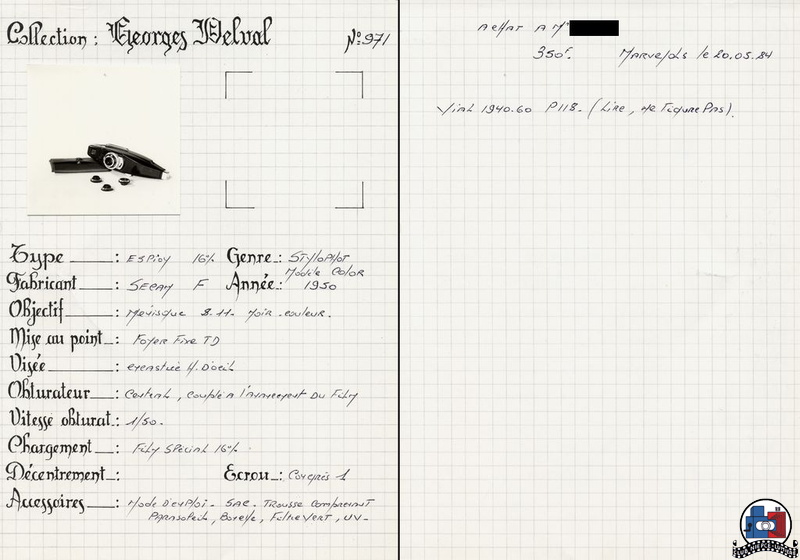 Collection : Georges Delval Nº 971
Type : Espion 16% Genre : Stylophot
Modèle Color
Fabricant : Secam F Année : 1950
Objectif : Ménisque 8.11. Noir. couleur.
Mise au point : Foyer Fixe TD
Visée : encastrée H. D'oeil
Obturateur : Central, couplé a l'armement Du Film
Vitesse obturat : 1/50.
Chargement : Film Spécial 16%
Décentrement : Ecrou : Congrès 1
Accessoires : Mode D'emploi. SAC. Trousse Comprenant
Parasoleil, Bonette, Filtre Vert, UV.
Achat A Mr
350F. Marvejols le 20.05.84
Vial 1940.60 P118. (Lire, ne Figure Pas).